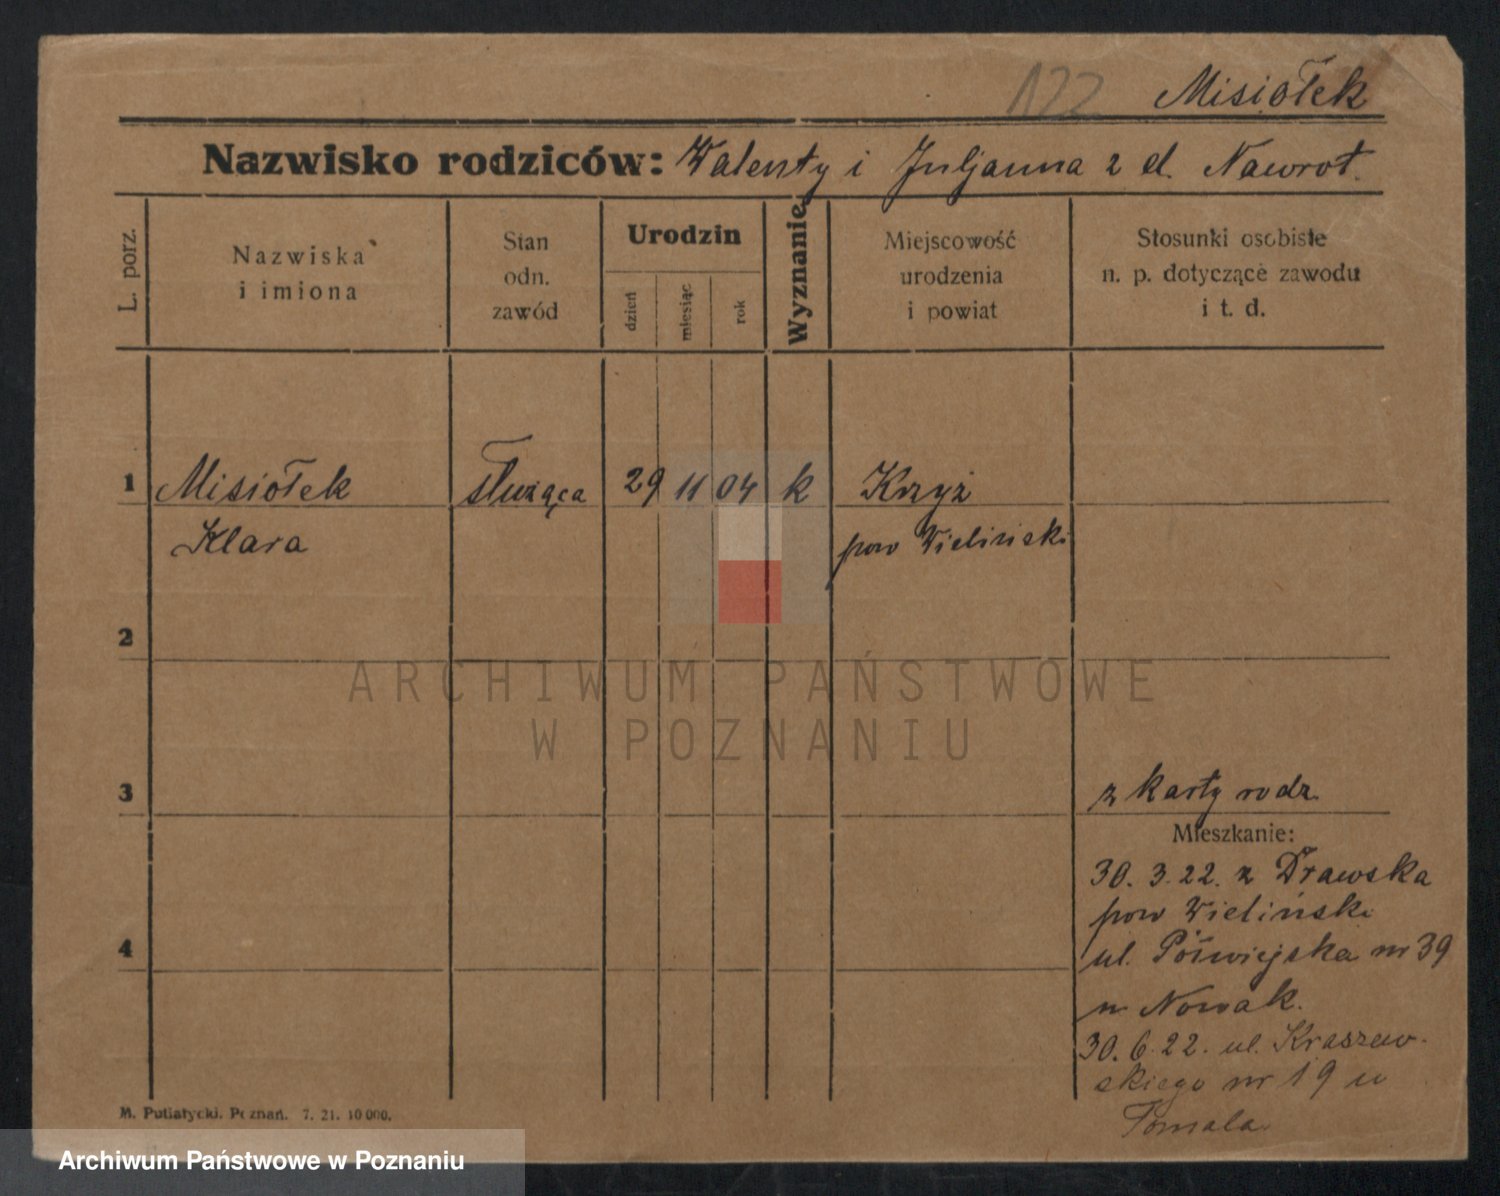 122 Misiołek
Nazwisko rodziców: Walenty i Juljanna z d. Nawrot.
L. porz.
Nazwiska
i imiona
Stan
odn.
zawód
Urodzin
dzień
miesiąc
rok
Wyznanie
Miejscowość
urodzenia
i powiat
Stosunki osobiste
n. p. dotyczące zawodu
i t. d.
1 Misiołek służąca 29 11 04 k Krzyż
Klara pow Wieliński
2
ARCHIWUM PAŃSTWOWE
W POZNANIU
3 z karty rodz.
Mieszkanie:
30. 3. 22. z Drawska
pow Wieliński
4 ul. Półwiejska nr 39
u Nowak.
30. 6. 22. ul. Kraszew-
skiego nr 19 u
Tomala
M. Putiatycki, Poznań. 7. 21. 10 000.
Archiwum Państwowe w Poznaniu